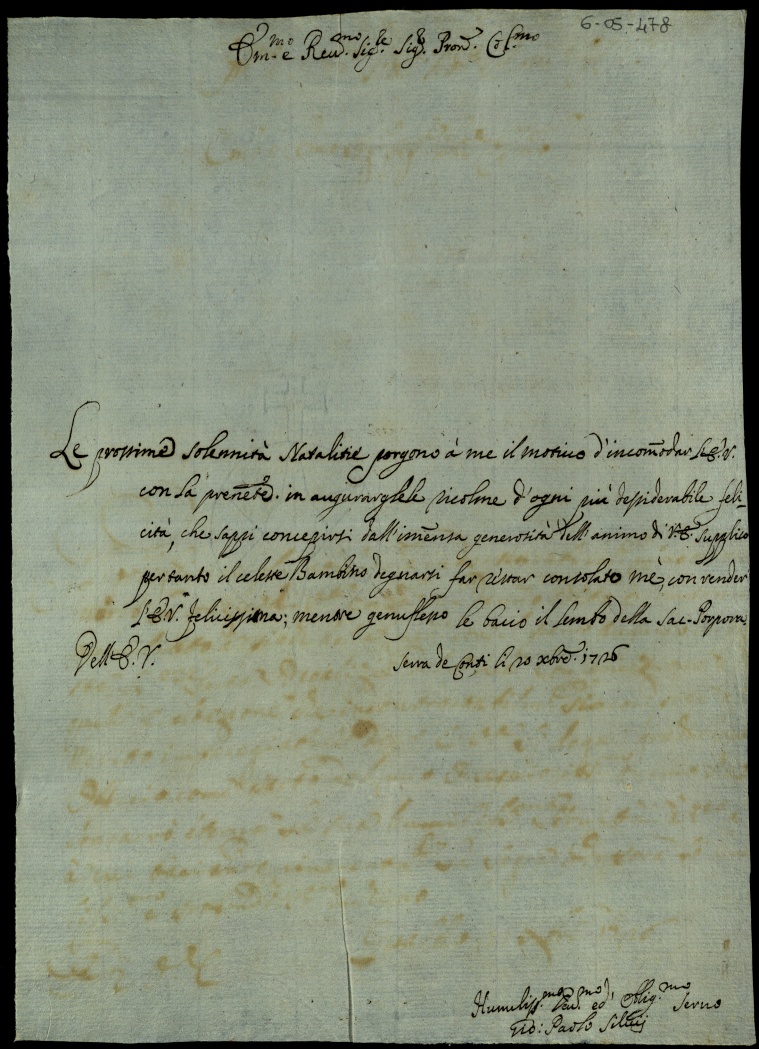 6-05-478
Em.mo e Reu.mo Sig.re Sig.r Pron. Col.mo
Le prossime solennità Natalitie porgono à me il motiuo d'incomodar l'E.V.
con la presente in augurargliele ricolme d'ogni più desiderabile feli-
cità, che sappi concepirsi dall'imensa generosità dell'animo di V.E. supplico
pertanto il celeste Bambino degnarsi far restar consolato mè, con render
l'E.V. felicissima; mentre genuflesso le bacio il lembo della Sac. Porpora.
Dell'E.V.
Serra de Conti li 20 xbre. 1726
Humiliss.mo Deu.mo ed Oblig.mo Seruo
Gio: Paolo Siluij